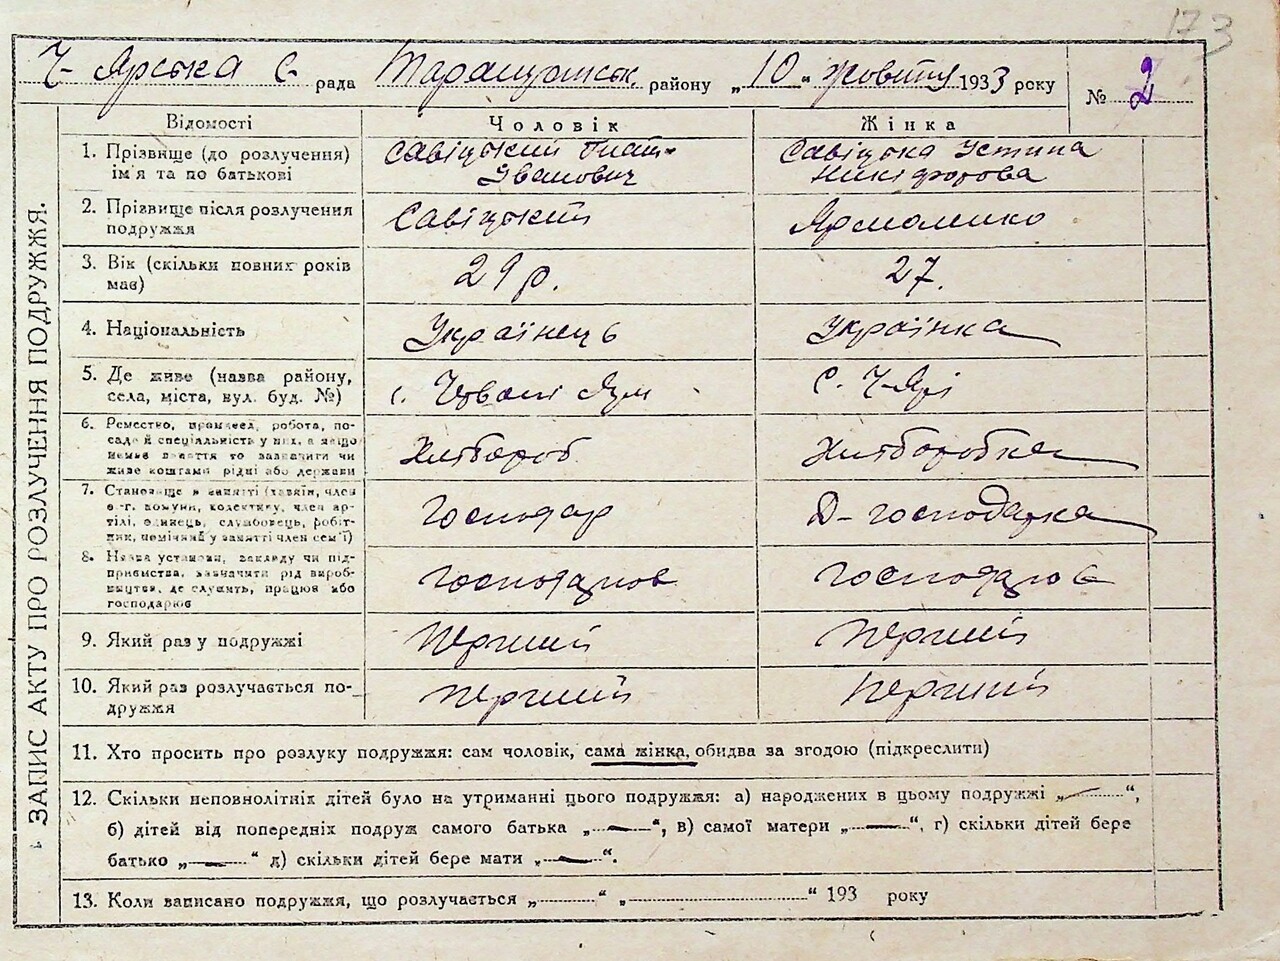 173
Ч-Ярська с- рада Таращанськ. району „10“ жовтня 1933 року
№ 2
ЗАПИС АКТУ ПРО РОЗЛУЧЕННЯ ПОДРУЖЖЯ.
Відомості Чоловік Жінка
1. Прізвище (до розлучення) ім'я та по батькові
Савіцький Гнат Іванович
Савіцька Устина Никіфорова
2. Прізвище після розлучення подружжя
Савіцький
Ярмоленко
3. Вік (скільки повних років має)
29 р.
27.
4. Національність
Українець
Українка
5. Де живе (назва району, села, міста, вул. буд. №)
с. Червоні Яри
с. Ч-Ярі
6. Ремество, промисел, робота, посада й спеціяльність у них, а якщо немає заняття то зазначити чи живе коштами рідні або держави
Хлібороб
Хліборобка
7. Становище в занятті (хазяїн, член с.-г. комуни, колективу, член артілі, одинець, службовець, робітник, помічний у занятті член сем'ї)
Господар
Д-господарка
8. Назва установи, закладу чи підприємства, зазначити рід виробництва, де служить, працює або господарює
господарюв
господарюв
9. Який раз у подружжі
перший
перший
10. Який раз розлучається подружжя
перший
перший
11. Хто просить про розлуку подружжя: сам чоловік, сама жінка, обидва за згодою (підкреслити)
12. Скільки неповнолітніх дітей було на утриманні цього подружжя: а) народжених в цьому подружжі „—“,
б) дітей від попередніх подруж самого батька „—“, в) самої матери „—“, г) скільки дітей бере
батько „—“ д) скільки дітей бере мати „—“.
13. Коли записано подружжя, що розлучається „ “ „ “ 193 року